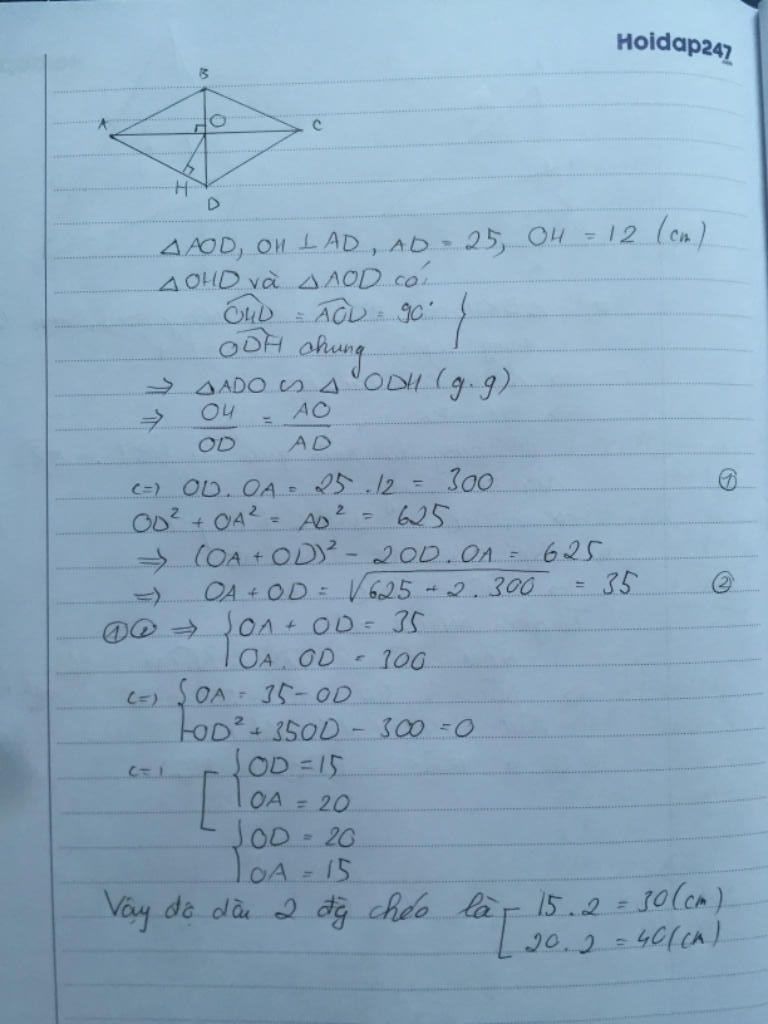 Hoidap247
B
A
O
C
H
D
△AOD, OH ⊥ AD, AD = 25, OH = 12 (cm)
△OHD và △AOD có:
OHD = AOD = 90°
ODH chung
=> △ADO ∽ △ ODH (g.g)
=> OH/OD = AO/AD
<=> OD.OA = 25.12 = 300 ①
OD² + OA² = AD² = 625
=> (OA + OD)² - 2OD.OA = 625
=> OA + OD = √625 + 2.300 = 35 ②
①② => { OA + OD = 35
OA.OD = 300
<=> { OA = 35 - OD
-OD² + 35OD - 300 = 0
<=> [ { OD = 15
OA = 20
{ OD = 20
OA = 15
Vậy độ dài 2 đg chéo là [ 15.2 = 30 (cm)
20.2 = 40 (cm)